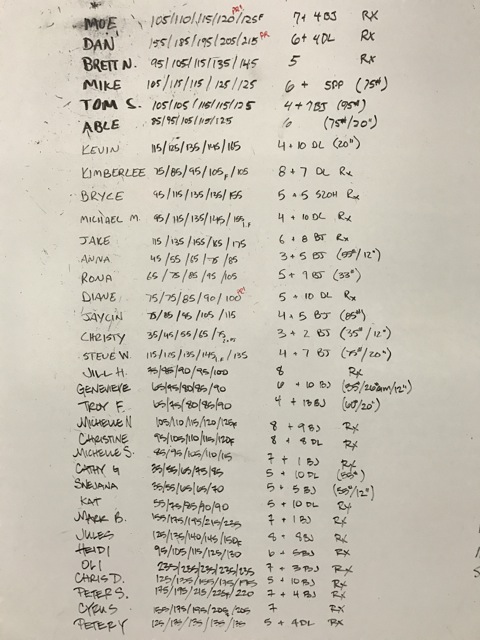 MOE 105/110/115/120/125F PR! 7 + 4 BJ RX
DAN 155/185/195/205/215 PR 6 + 4 DL RX
BRETT N. 95/105/115/135/145 5 RX
MIKE 105/115/115/125/125 6 + 5PP (75#)
TOM S. 105/105/115/115/125 4 + 7BJ (95#)
ABLE 85/95/105/115/125 6 (75#/20")
KEVIN 115/125/135/145/165 4 + 10 DL (20")
KIMBERLEE 75/85/95/105F/105 8 + 7 DL Rx
BRYCE 95/115/135/135/155 5 + 5 S2OH Rx
MICHAEL M. 95/115/135/145/155 4 + 10 DL Rx
JAKE 115/135/155/165/175 6 + 8 BJ Rx
ANNA 45/55/65/75/85 3 + 5 BJ (55#/12")
RONA 65/75/85/95/105 5 + 9 BJ (33#)
DIANE 75/75/85/90/100 PR! 5 + 10 DL Rx
JAYLIN 75/85/95/105/115 4 + 5 BJ (85#)
CHRISTY 35/45/55/65/75 3 + 2 BJ (35#/12")
STEVE W. 115/125/135/145/135 4 + 7 BJ (75#/20")
JILL H. 75/85/90/95/100 8 Rx
GENEVIEVE 65/75/80/85/90 6 + 10 BJ
TROY F. 65/75/80/85/90 4 + 13 BJ (65/20")
MICHELLE N 105/110/115/120/125F 8 + 9 BJ Rx
CHRISTINE 95/105/110/115/120F 8 + 8 DL Rx
MICHELLE S. 85/95/105/110/115 7 + 1 BJ Rx
CATHY G 35/55/65/75/85 5 + 10 DL (55#)
SNEJANA 35/55/65/65/70 5 + 5 BJ (55#/12")
KAT 55/75/85/90/90 5 + 10 DL Rx
MARK B. 155/175/195/215/235 7 + 1 BJ Rx
JULES 125/135/140/145/150F 8 + 8BJ Rx
HEIDI 95/105/115/125/130 6 + 5BJ Rx
OLI 235/235/235/235/235 7 + 3 BJ Rx
CHRIS D. 125/135/155/175/175 5 + 10 BJ Rx
PETER S. 175/195/215/225F/220 7 + 4 BJ Rx
CYRUS 155/175/195/205/205 7 Rx
PETER Y 125/135/135/135/135 5 + 4DL Rx